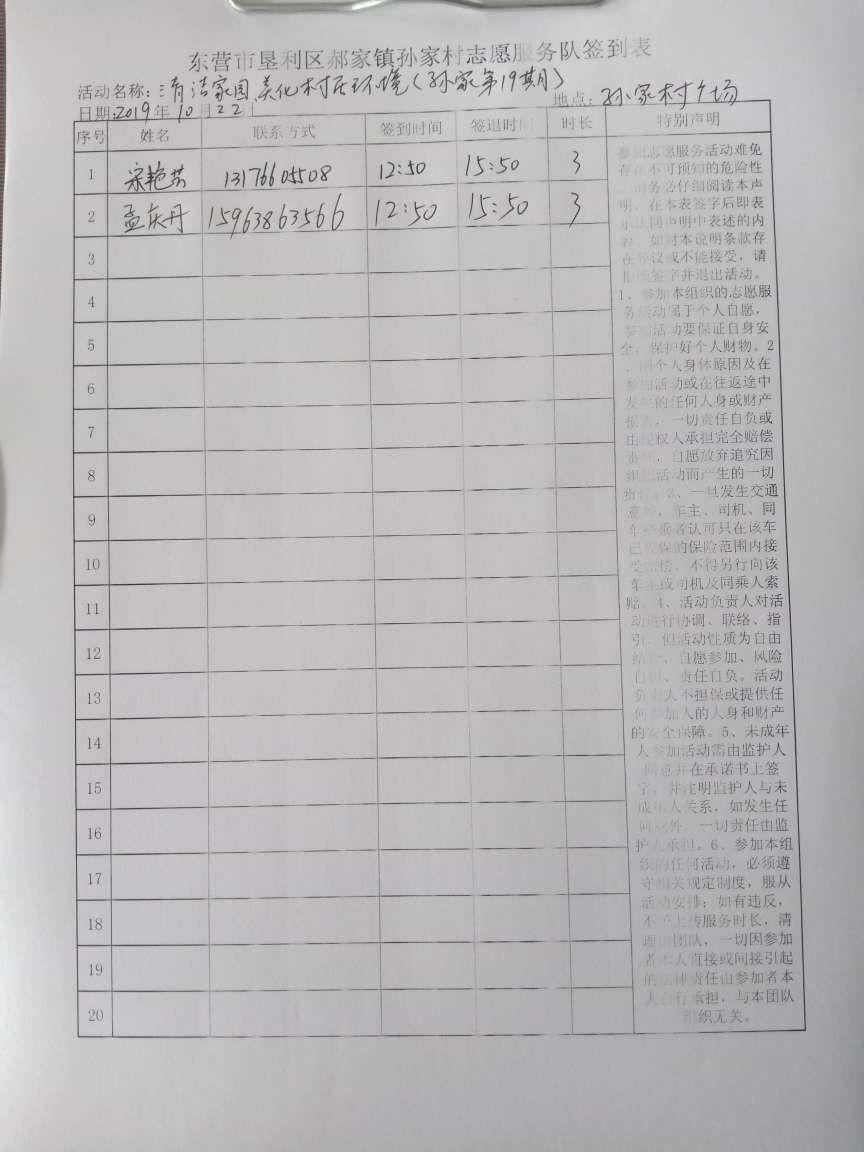 东营市垦利区郝家镇孙家村志愿服务队签到表
活动名称:清洁家园,美化村庄环境(孙家第19期)
日期:2019年10月22日
地点:孙家村广场
序号 姓名 联系方式 签到时间 签退时间 时长 特别声明
1 宋艳芸 13176605508 12:50 15:50 3
2 孟庆丹 15963863566 12:50 15:50 3
3
4
5
6
7
8
9
10
11
12
13
14
15
16
17
18
19
20
参加志愿服务活动难免
存在不可预知的危险性
,请务必仔细阅读本声
明,在本表签字后即表
示认同声明中表述的内
容,如对本说明条款存
在异议或不能接受,请
拒绝签字并退出活动。
1、参加本组织的志愿服
务活动属于个人自愿,
参加活动要保证自身安
全,保护好个人财物。2
、因个人身体原因及在
参加活动或在往返途中
发生的任何人身或财产
损害,一切责任自负或
由授权人承担完全赔偿
责任,自愿放弃追究因
组织活动而产生的一切
责任。3、一旦发生交通
意外,车主、司机、同
车搭乘者认可只在该车
已投保的保险范围内接
受赔偿,不得另行向该
车主或司机及同乘人索
赔。4、活动负责人对活
动进行协调、联络、指
引,但活动性质为自由
结合、自愿参加、风险
自担、责任自负。活动
负责人不担保或提供任
何参加人的人身和财产
的安全保障。5、未成年
人参加活动需由监护人
同意并在承诺书上签
字,并注明监护人与未
成年人关系,如发生任
何意外,一切责任由监
护人承担。6、参加本组
织的任何活动,必须遵
守相关规定制度,服从
活动安排;如有违反,
不予上传服务时长,清
理出团队,一切因参加
者本人直接或间接引起
的法律责任由参加者本
人自行承担,与本团队
组织无关。